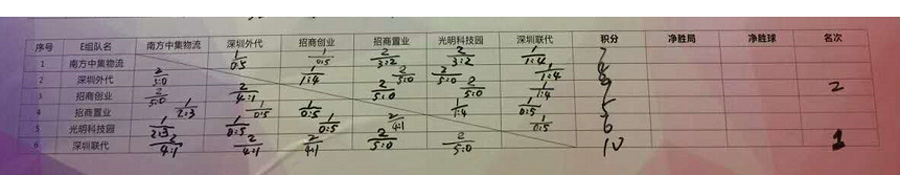 序号 E组队名 南方中集物流 深圳外代 招商创业 招商置业 光明科技园 深圳联代 积分 净胜局 净胜球 名次
1 南方中集物流 1/0:5 1/0:5 2/3:2 2/3:2 1/1:4 7
2 深圳外代 2/5:0 1/1:4 2/5:0 2/5:0 1/1:4 8
3 招商创业 2/5:0 2/4:1 2/5:0 2/5:0 1/1:4 9 2
4 招商置业 1/2:3 1/0:5 1/0:5 1/1:4 1/0:5 5
5 光明科技园 1/2:3 1/0:5 1/0:5 2/4:1 1/0:5 6
6 深圳联代 2/4:1 2/4:1 2/4:1 2/5:0 2/5:0 10 1